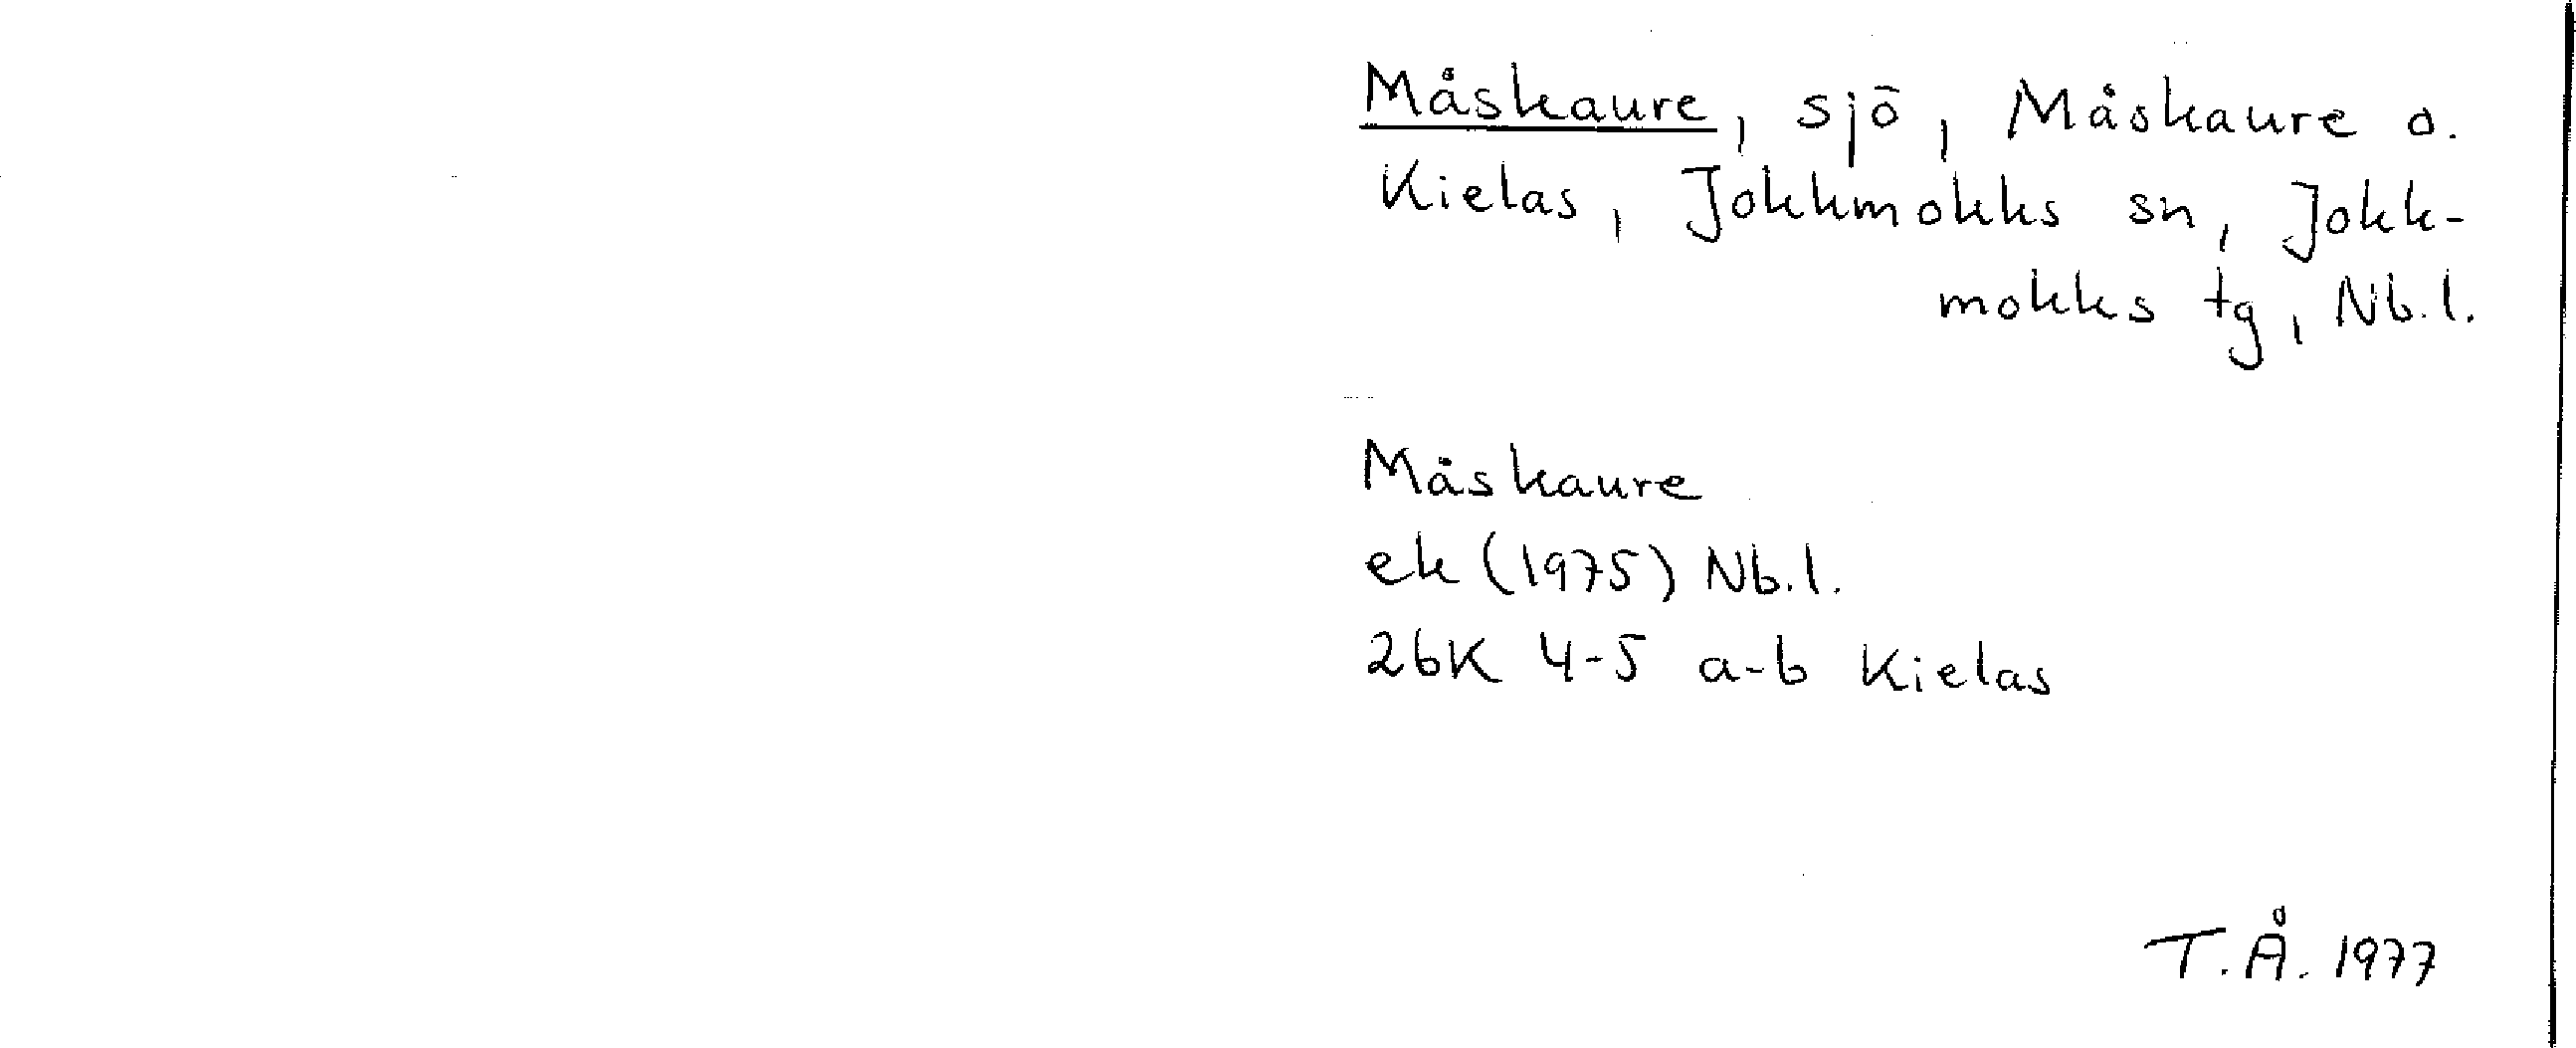 Måskaure, sjö, Måskaure o.
Kielas, Jokkmokks sn, Jokk-
mokks tg, Nb.l.
Måskaure
ek (1975) Nb.l.
26K 4-5 a-b Kielas
T.Å. 1977